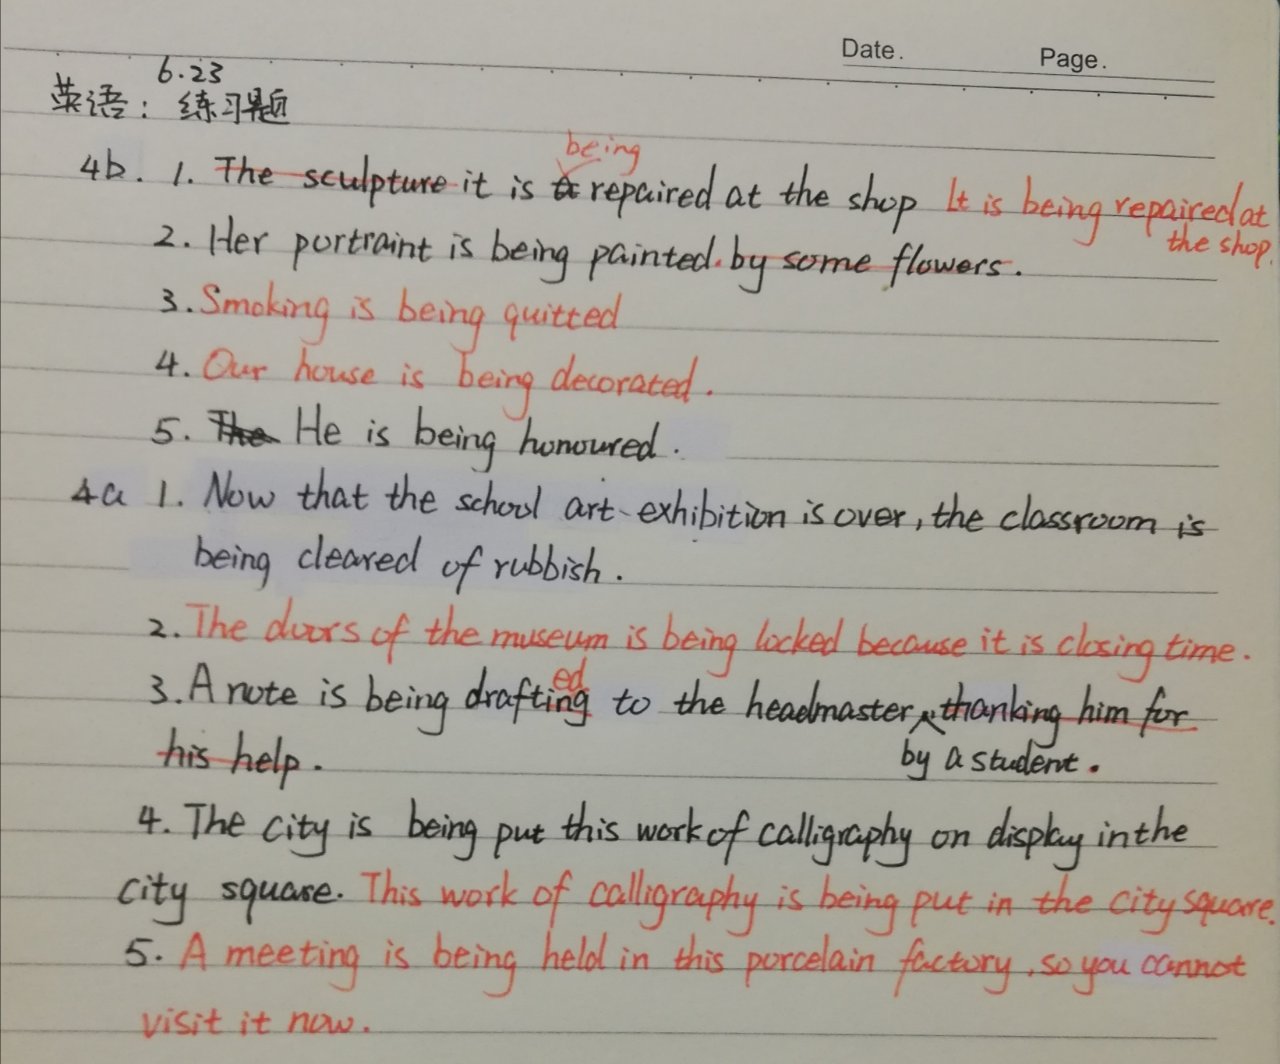 Date. Page.
6.23
英语: 练习题
being
4b. 1. The sculpture it is repaired at the shop It is being repaired at
the shop.
2. Her portraint is being painted. by some flowers.
3. Smoking is being quitted
4. Our house is being decorated.
5. The He is being honoured.
4a 1. Now that the school art exhibition is over, the classroom is
being cleared of rubbish.
2. The doors of the museum is being locked because it is closing time.
ed
3. A note is being drafting to the headmaster, thanking him for
his help. by a student.
4. The city is being put this work of calligraphy on display in the
city square. This work of calligraphy is being put in the city square.
5. A meeting is being held in this porcelain factory, so you cannot
visit it now.